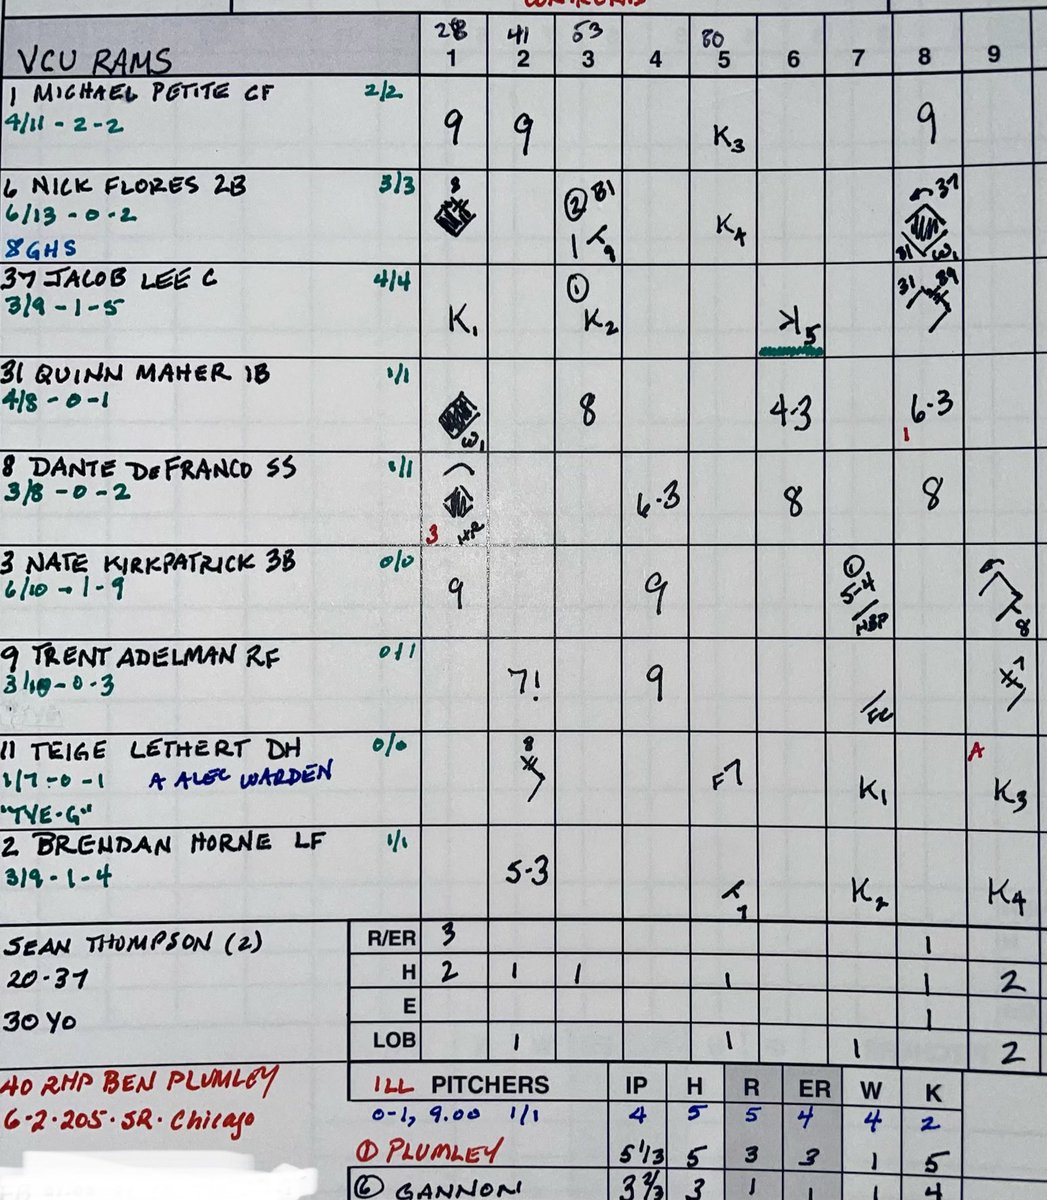 28 41 53 80
VCU RAMS 1 2 3 4 5 6 7 8 9
1 MICHAEL PETITE CF 2/2
4/11 - 2 - 2
9 9 K3 9
6 NICK FLORES 2B 3/3
6/13 - 0 - 2
8 GHS
8 2 B1 1 9 K4 37 31 W1
37 JACOB LEE C 4/4
3/9 - 1 - 5
K1 1 K2 K5 31
31 QUINN MAHER 1B 1/1
4/8 - 0 - 1
W1 8 4-3 6-3 1
8 DANTE DeFRANCO SS 1/1
3/8 - 0 - 2
3 HR 6-3 8 8
3 NATE KIRKPATRICK 3B 0/0
6/10 - 1 - 9
9 9 1 5-4 HBP 8
9 TRENT ADELMAN RF 0/1
3/10 - 0 - 3
7! 9 FC 7
11 TEIGE LETHERT DH 0/0
1/7 - 0 - 1 A ALEC WARDEN
"TYE-G"
8 F7 K1 A K3
2 BRENDAN HORNE LF 1/1
3/9 - 1 - 4
5-3 7 K2 K4
SEAN THOMPSON (2)
20-37
30 YO
R/ER 3 1
H 2 1 1 1 1 2
E 1
LOB 1 1 1 2
40 RHP BEN PLUMLEY
6-2-205-SR-Chicago
ILL PITCHERS IP H R ER W K
0-1, 9.00 1/1 4 5 5 4 4 2
1 PLUMLEY 5 1/3 5 3 3 1 5
6 GANNON 3 2/3 3 1 1 1 4